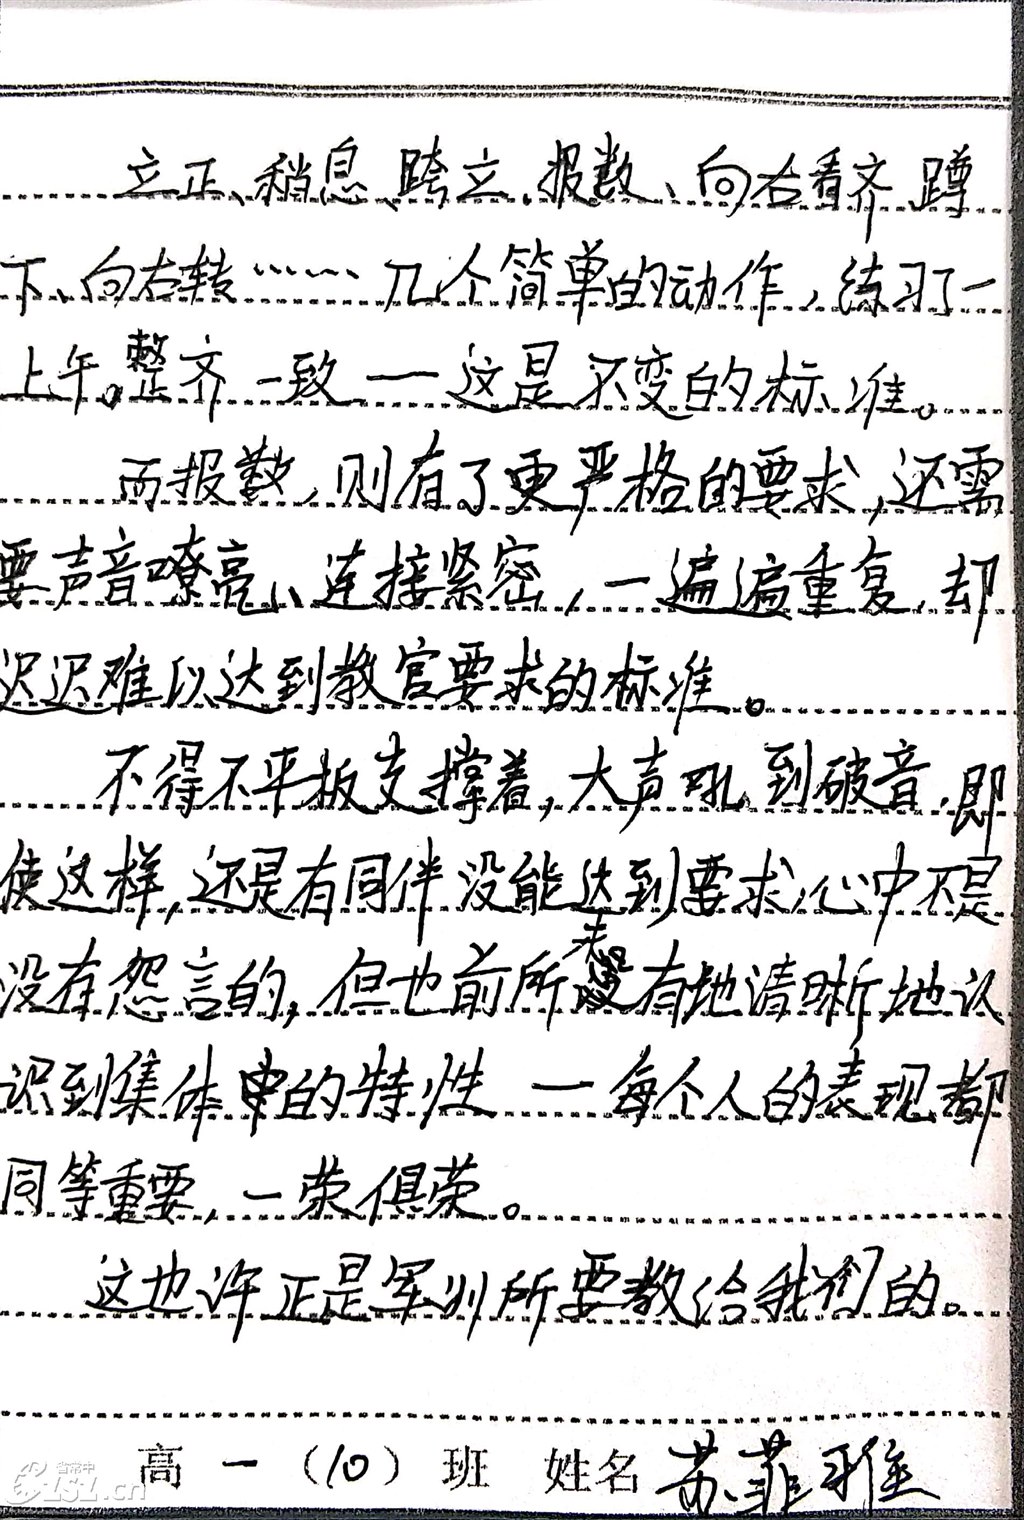 立正、稍息、跨立、报数、向右看齐、蹲
下、向右转……几个简单的动作，练习了一
上午。整齐一致——这是不变的标准。
而报数，则有了更严格的要求，还需
要声音嘹亮、连接紧密，一遍遍重复，却
迟迟难以达到教官要求的标准。
不得不平板支撑着，大声吼到破音，即
使这样，还是有同伴没能达到要求，心中不是
没有怨言的，但也前所未有地清晰地认
识到集体中的特性——每个人的表现都
同等重要，一荣俱荣。
这也许正是军训所要教给我们的。
高一（10）班 姓名 苏菲雅
省常中